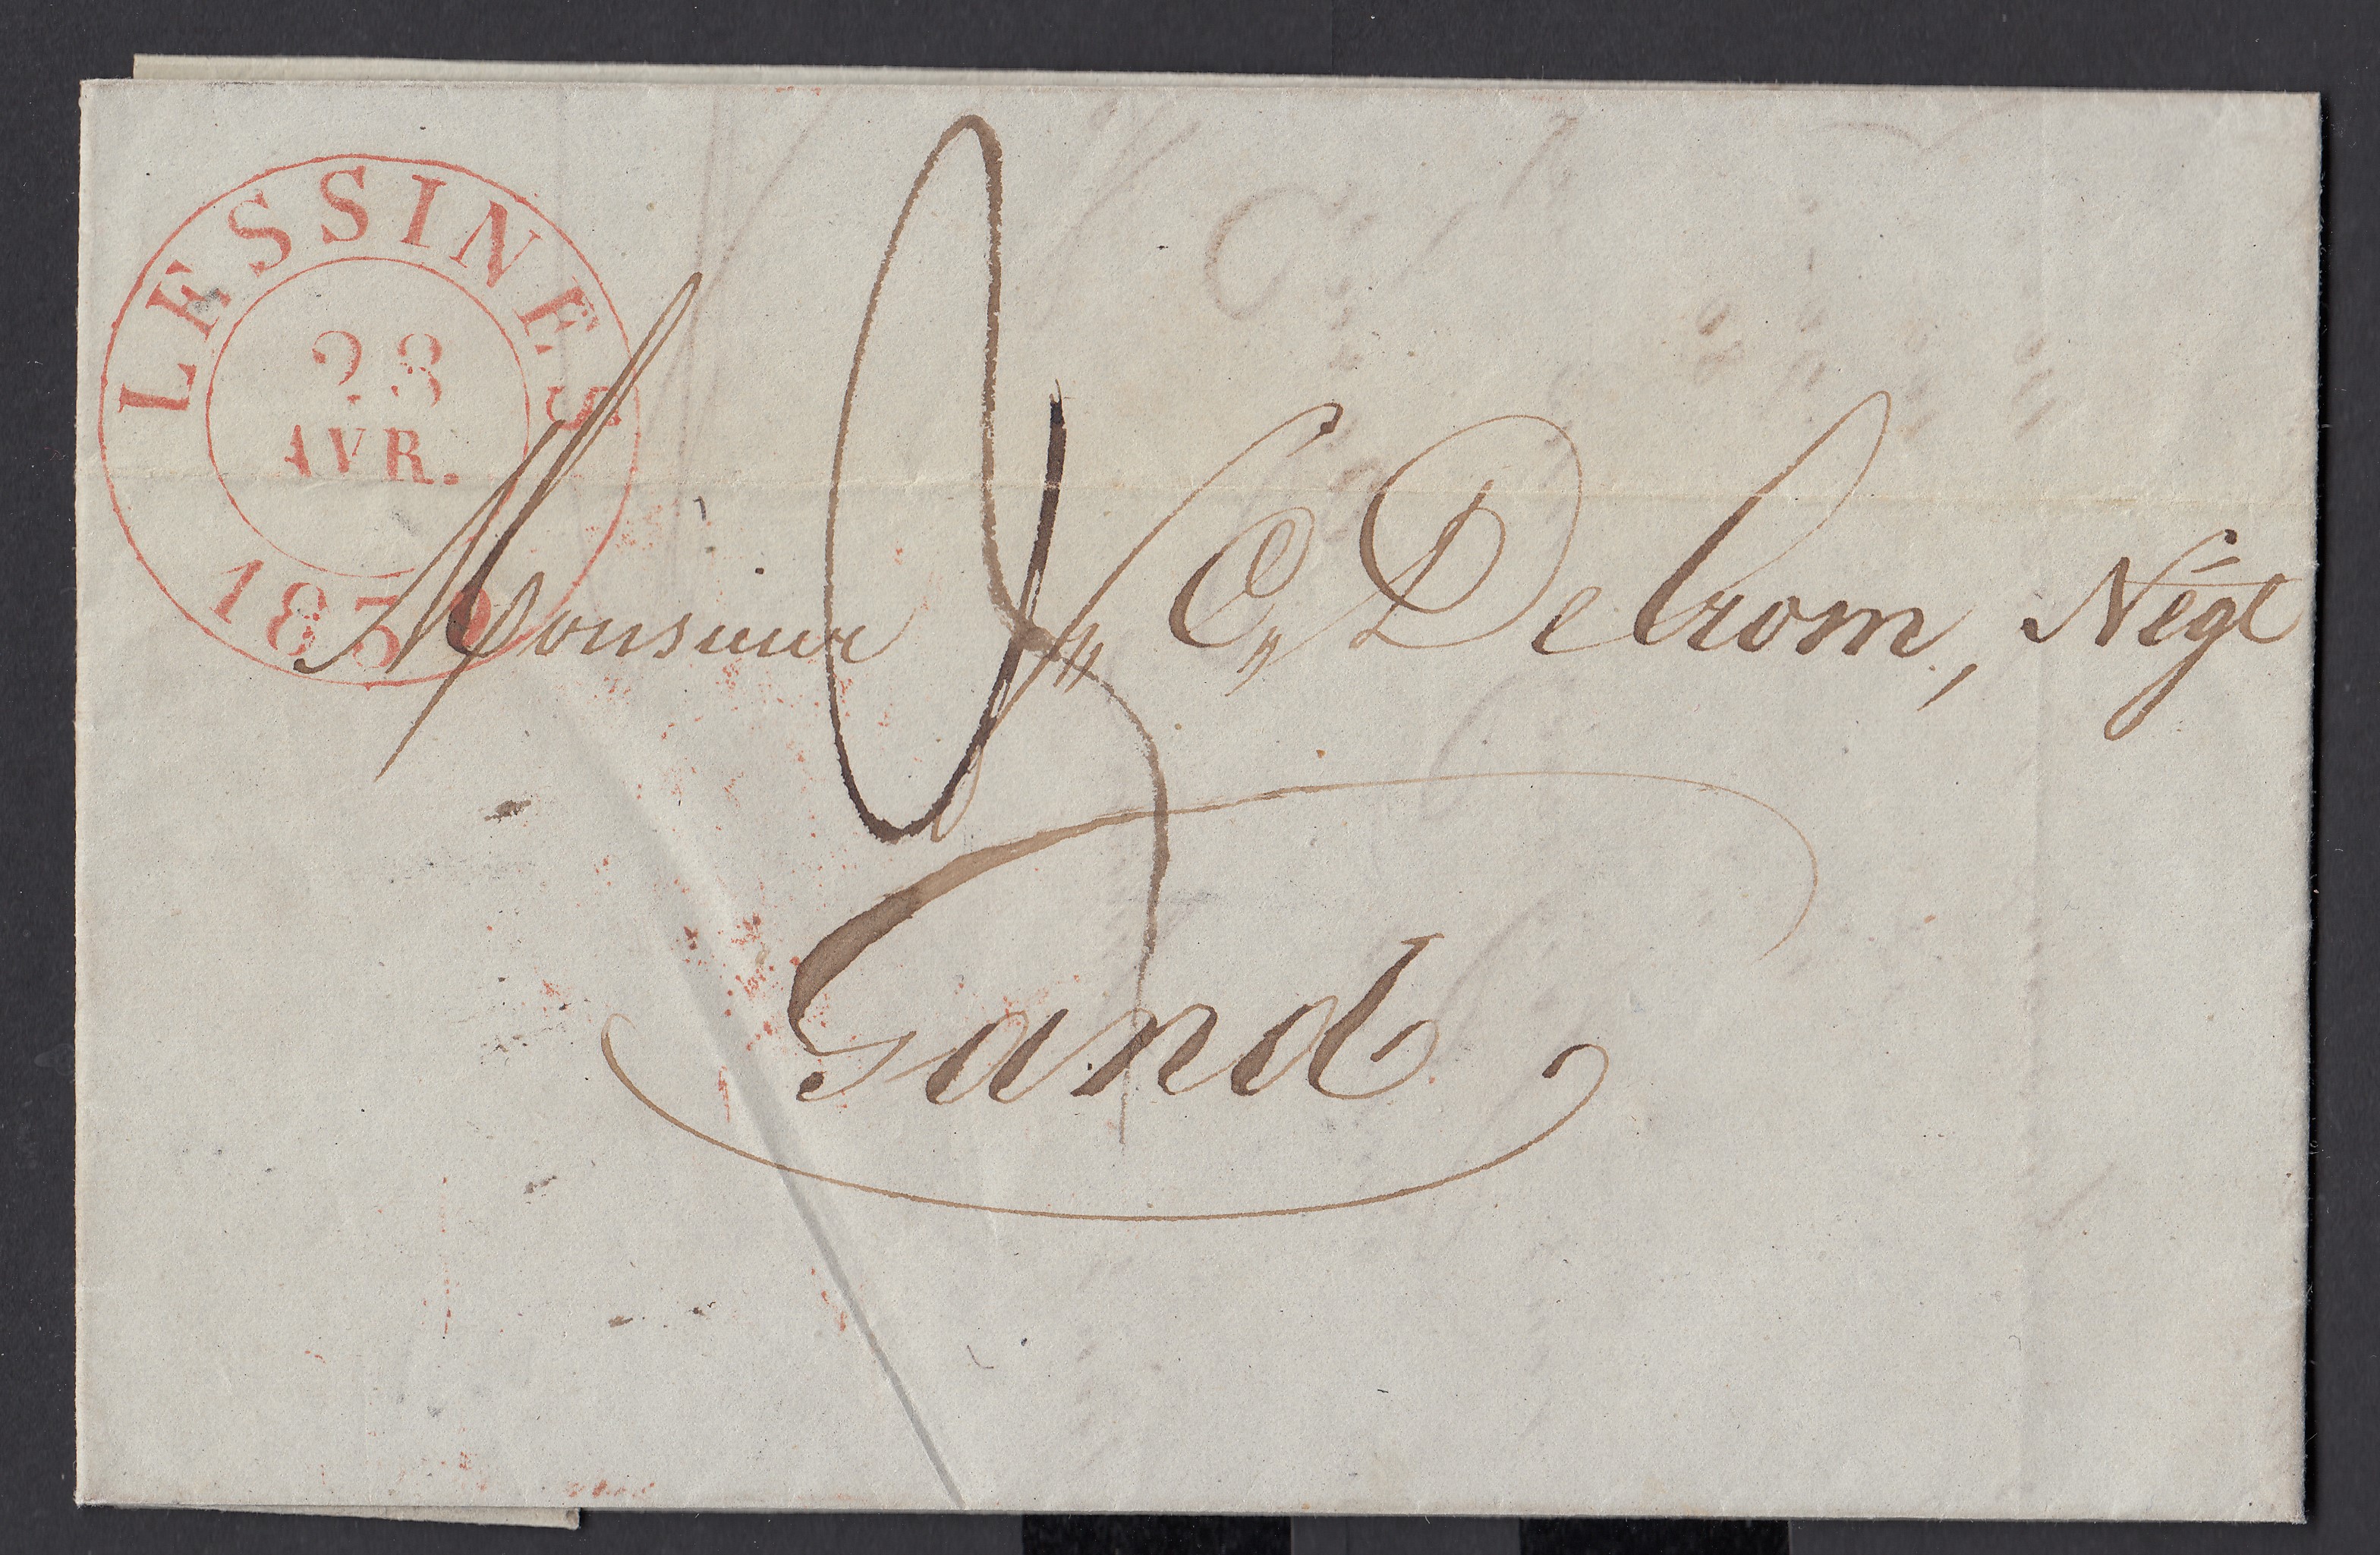 LESSINES
23
AVR.
1839
Monsieur J. C. Delrom, Négt
Gand